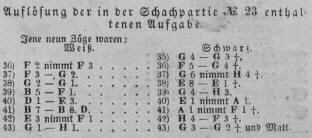 Auflösung der in der Schachpartie № 23 enthal-
tenen Aufgabe.
Jene neun Züge waren:
Weiß. Schwarz.
35) G 4 — G 3 †.
36) F 2 nimmt F 3 36) F 5 — G 4 †.
37) F 3 — G 2. 37) G 6 nimmt H 4 †.
38) G 2 — G 1. 38) E 8 — E 1 †.
39) B 5 — F 1. 39) G 4 — H 3.
40) D 1 — E 3. 40) E 1 nimmt A 1.
41) B 7 — B 8. D. 41) A 1 nimmt F 1 †.
42) E 3 nimmt F 1 42) H 4 — F 3 †.
43) G 1 — H 1. 43) G 3 — G 2 † und Matt.